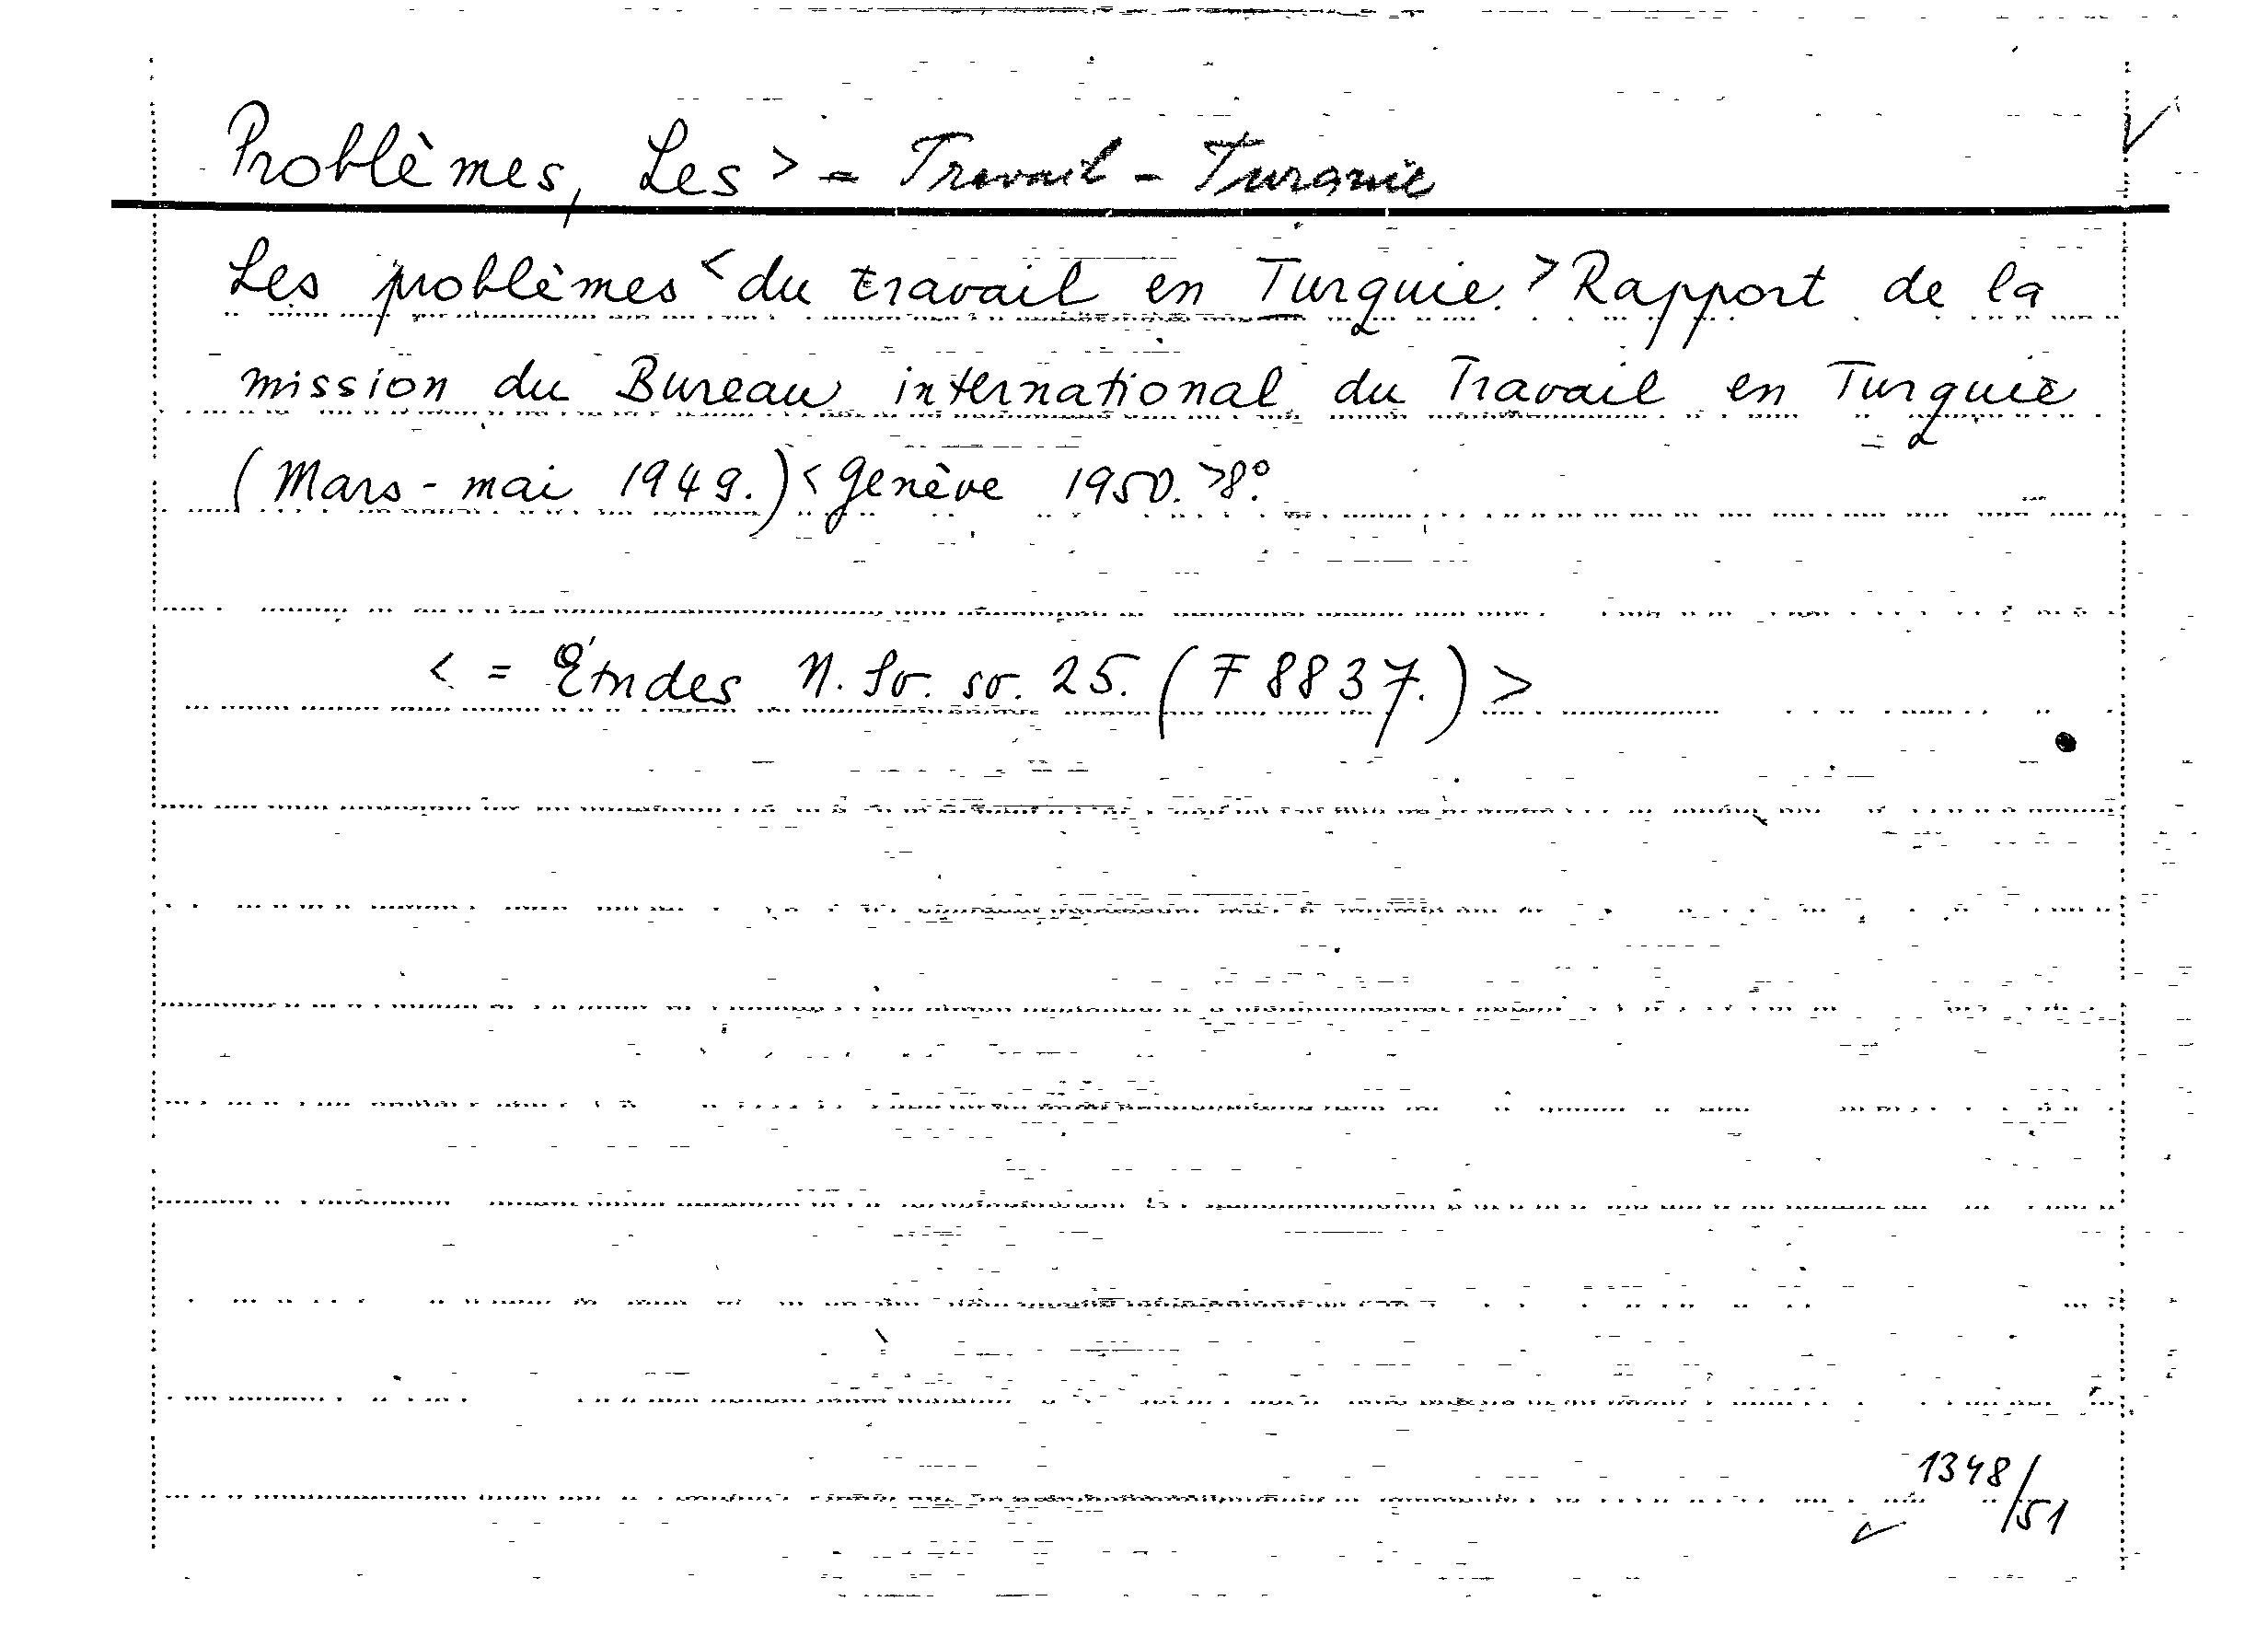 Problèmes, Les > - Travail - Turquie
Les problèmes < du travail en Turquie. > Rapport de la
mission du Bureau international du Travail en Turquie
(Mars - mai 1949.) < Genève 1950. > 8°.
< = Études N. Sr. sr. 25. (F 8837.) >
1348/51